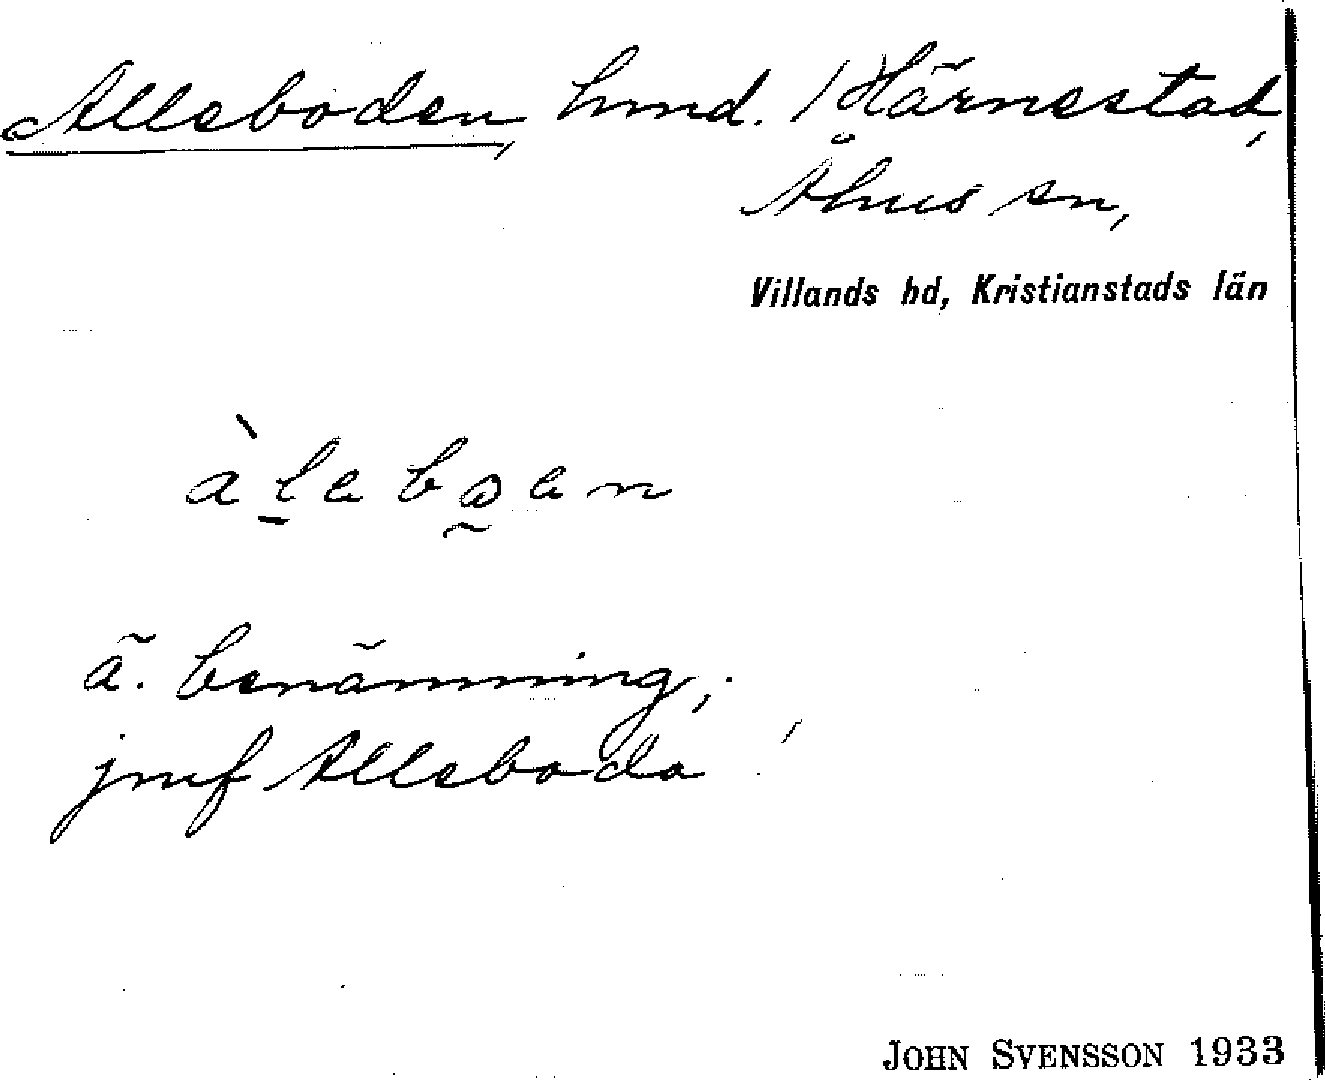 Alleboden, hmd. / Härnestad,
Åhus sn,
Villands hd, Kristianstads län
ä. benämning;
jmf Alleboda
JOHN SVENSSON 1933